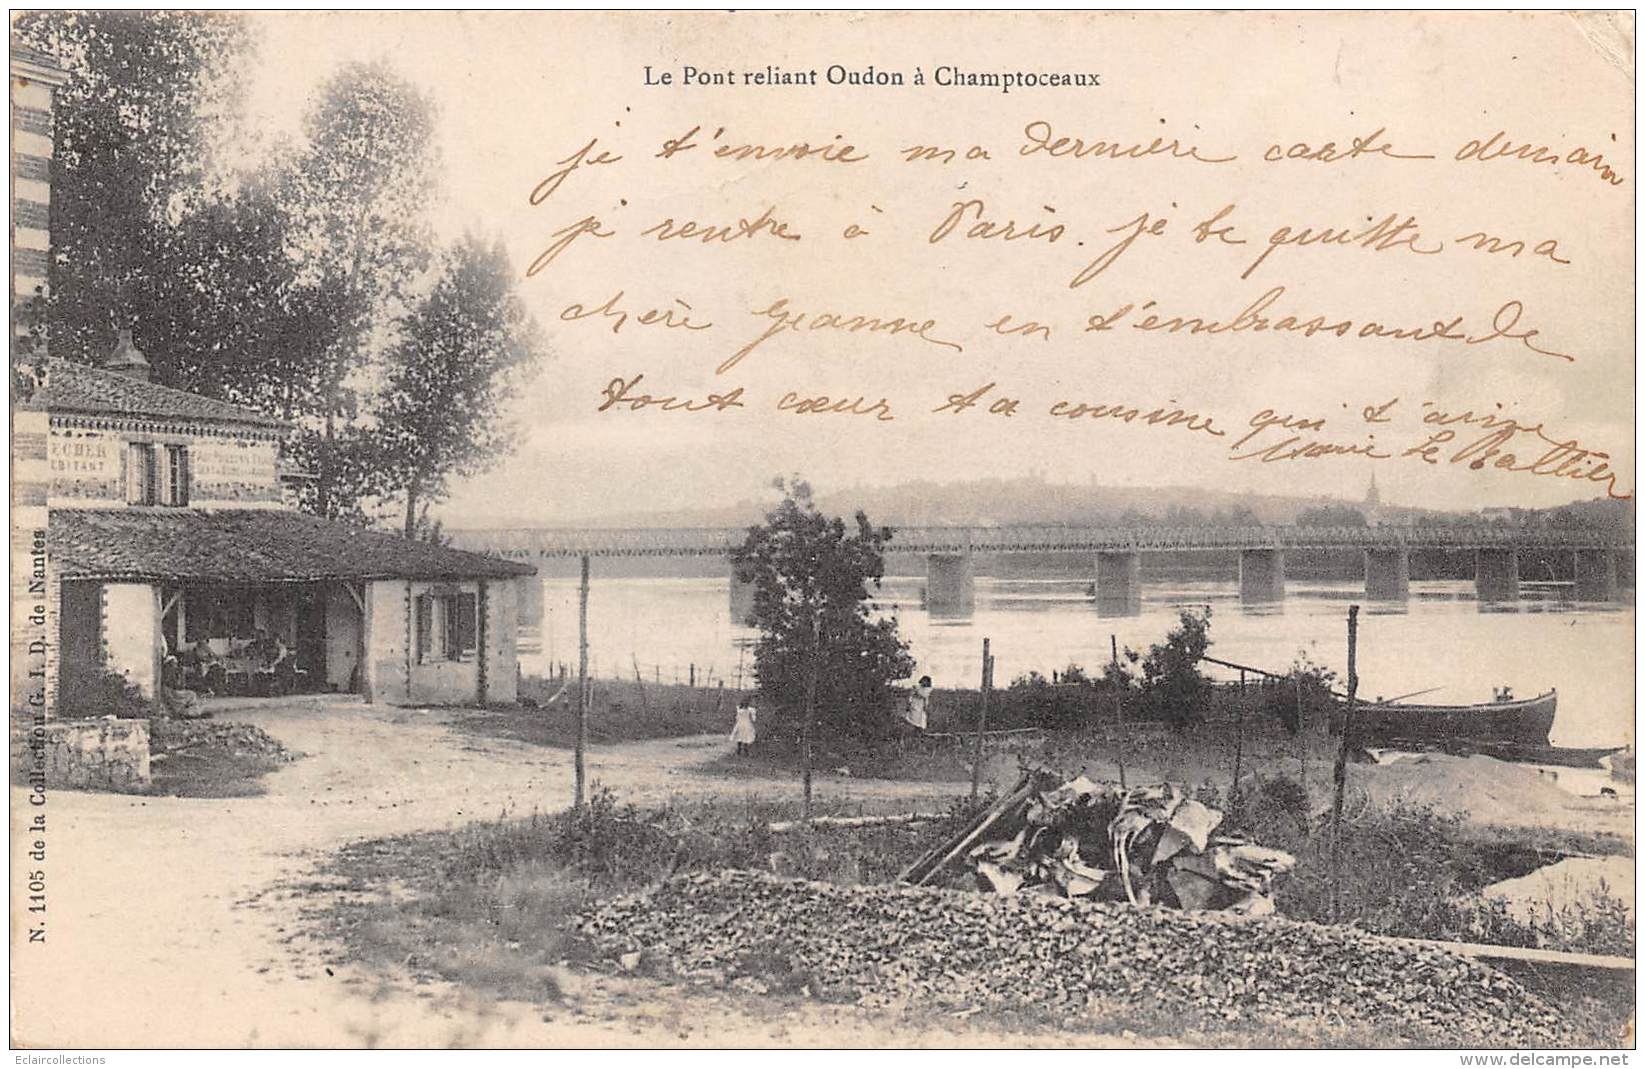 Le Pont reliant Oudon à Champtoceaux
je t'envoie ma dernière carte demain
je rentre à Paris. je te quitte ma
chère Jeanne en t'embrassant de
tout cœur ta cousine qui t'aime
Marie Le Ballier
ECHER
DEBITANT
N. 1105 de la Collection G. I. D. de Nantes
Eclaircollections
www.delcampe.net